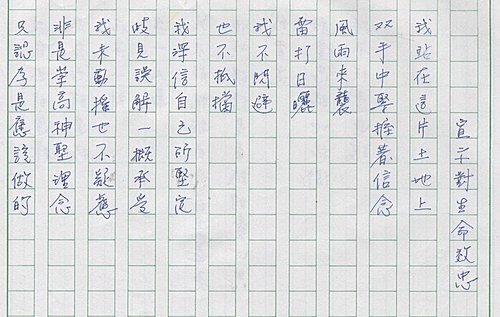 宣示對生命效忠
我站在這片土地上
双手中緊握著信念
風雨來襲
雷打日曬
我不閃避
也不抵擋
我深信自己所堅定
歧見誤解一概承受
我未動搖也不疑慮
非是崇高神聖理念
只認為是應該做的